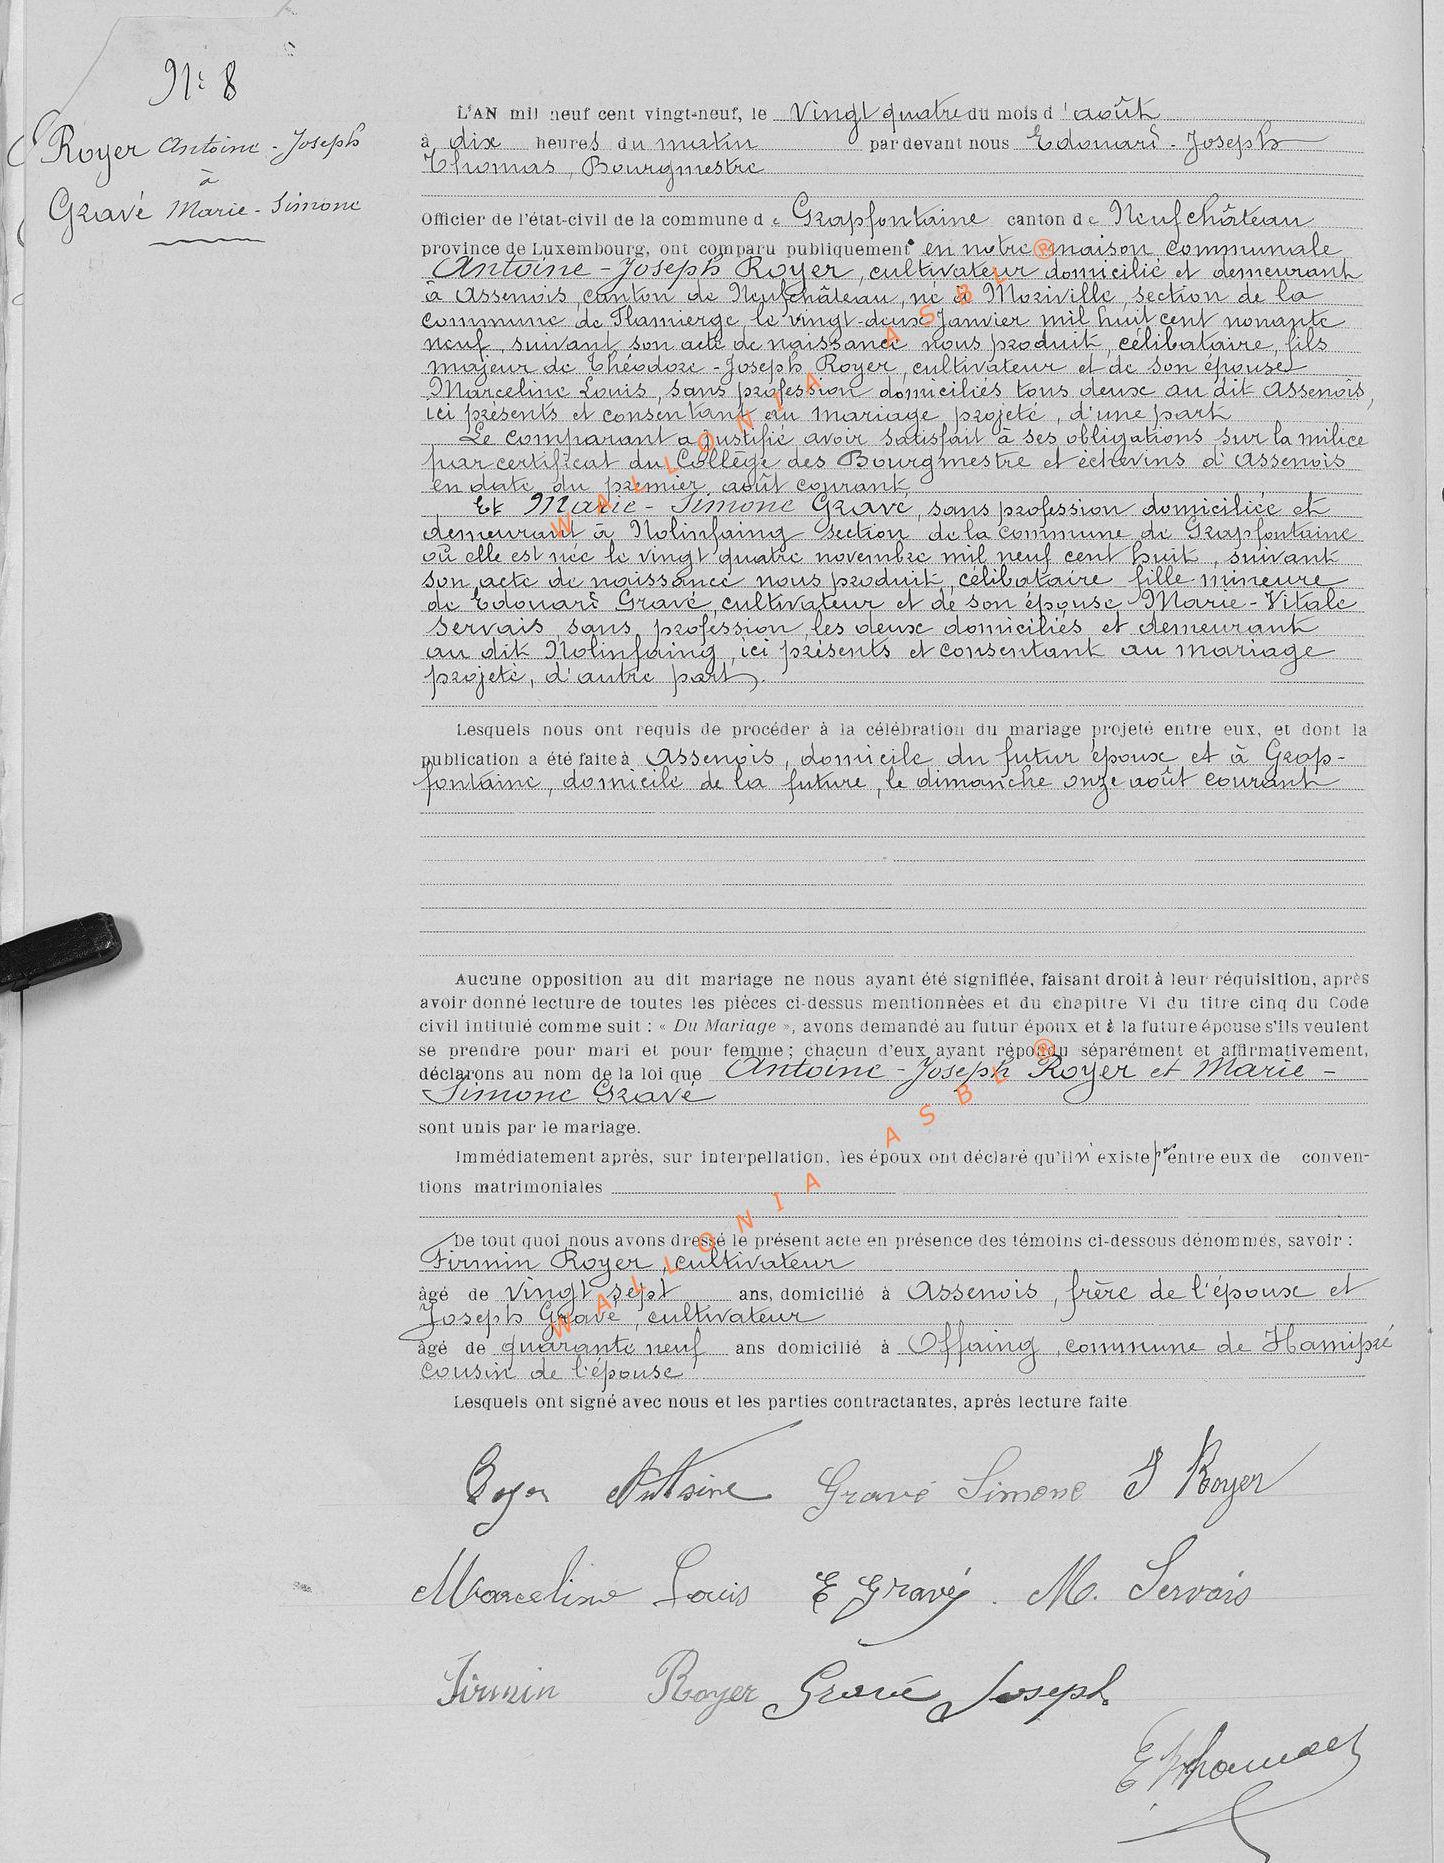 N° 8
Royer Antoine - Joseph
à
Gravé Marie - Simone
L'AN mil neuf cent vingt-neuf, le Vingt quatre du mois d'août
à dix heures du matin par devant nous Edouard - Joseph
Thomas, Bourgmestre
Officier de l'état-civil de la commune de Grapfontaine canton de Neufchâteau
province de Luxembourg, ont comparu publiquement en notre maison communale
Antoine - Joseph Royer, cultivateur domicilié et demeurant
à Assenois, canton de Neufchâteau, né à Moriville, section de la
commune de Flamierge, le vingt-deux Janvier mil huit cent nonante
neuf, suivant son acte de naissance nous produit, célibataire, fils
majeur de Théodore - Joseph Royer, cultivateur et de son épouse
Marceline Louis, sans profession domiciliés tous deux au dit Assenois,
ici présents et consentant au mariage projeté, d'une part
Le comparant a justifié avoir satisfait à ses obligations sur la milice
par certificat du Collège des Bourgmestre et échevins d'Assenois
en date du premier août courant,
Et Marie - Simone Gravé, sans profession domiciliée et
demeurant à Nolinfaing section de la commune de Grapfontaine
où elle est née le vingt quatre novembre mil neuf cent huit, suivant
son acte de naissance nous produit, célibataire fille mineure
de Edouard Gravé, cultivateur et de son épouse Marie-Vitale
Servais, sans profession, les deux domiciliés et demeurant
au dit Nolinfaing, ici présents et consentant au mariage
projeté, d'autre part.
Lesquels nous ont requis de procéder à la célébration du mariage projeté entre eux, et dont la
publication a été faite à Assenois, domicile du futur époux et à Grap-
fontaine, domicile de la future, le dimanche onze août courant
Aucune opposition au dit mariage ne nous ayant été signifiée, faisant droit à leur réquisition, après
avoir donné lecture de toutes les pièces ci-dessus mentionnées et du chapitre VI du titre cinq du Code
civil intitulé comme suit : « Du Mariage », avons demandé au futur époux et à la future épouse s'ils veulent
se prendre pour mari et pour femme ; chacun d'eux ayant répondu séparément et affirmativement,
déclarons au nom de la loi que Antoine - Joseph Royer et Marie -
Simone Gravé
sont unis par le mariage.
Immédiatement après, sur interpellation, les époux ont déclaré qu'il n'existe pas entre eux de conven-
tions matrimoniales
De tout quoi nous avons dressé le présent acte en présence des témoins ci-dessous dénommés, savoir :
Firmin Royer, cultivateur
âgé de vingt sept ans, domicilié à Assenois, frère de l'époux et
Joseph Gravé, cultivateur
âgé de quarante neuf ans domicilié à Offaing, commune de Hamipré
cousin de l'épouse
Lesquels ont signé avec nous et les parties contractantes, après lecture faite
Royer Antoine Gravé Simone J Royer
Marceline Louis E Gravé. M. Servais
Firmin Royer Gravé Joseph
E Thomas
WALLONIA ASBL ®
WALLONIA ASBL ®